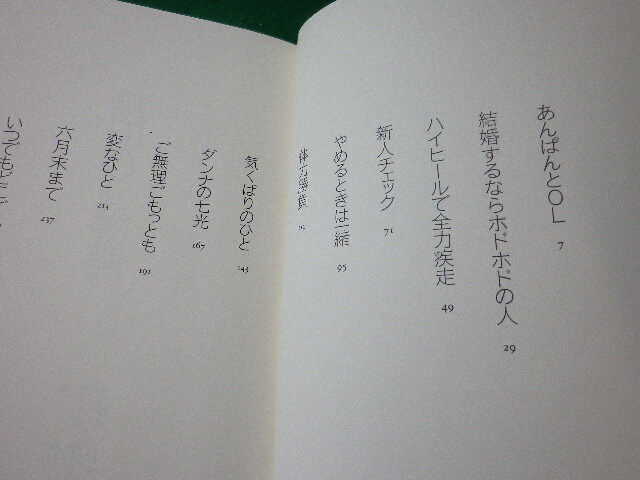 あんぱんとOL
7
結婚するならホドホドの人
29
ハイヒールで全力疾走
49
新人チェック
71
やめるときは一緒
95
気くばりのひと
143
ダンナの七光
167
ご無理ごもっとも
191
変なひと
214
六月末まで
237
いつでもどこ